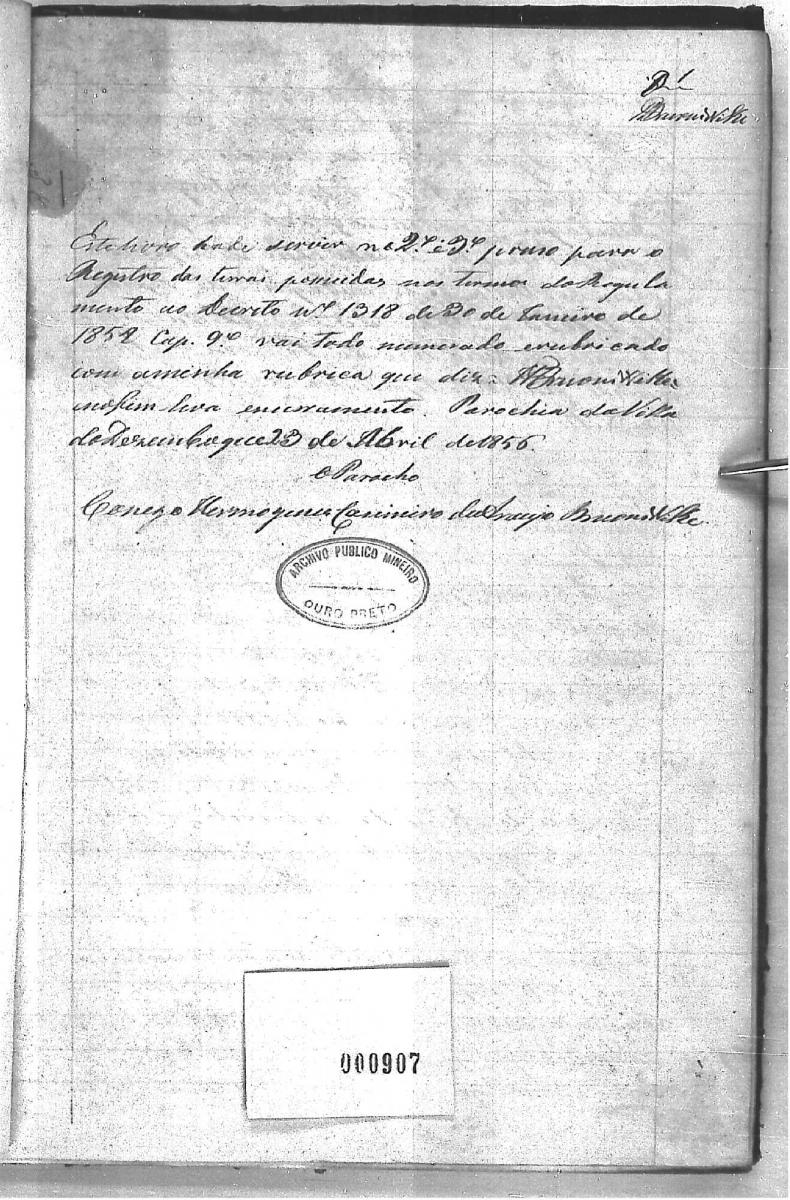 Bruonswike
Este livro hade servir no 2º e 3º praso para o
Registro das terras possuidas nos termos do Regula
mento ao Decreto nº 1318 de 30 de Janeiro de
1854 Cap. 9º vai todo numerado erubricado
com aminha rubrica que diz = Bruonswike =
enofim leva encerramento. Parochia da Villa
do Dezemboque 23 de Abril de 1856.
O Parocho
Conego Hermogenes Casimiro de Araujo Bruonswike.
ARCHIVO PUBLICO MINEIRO
OURO PRETO
000907